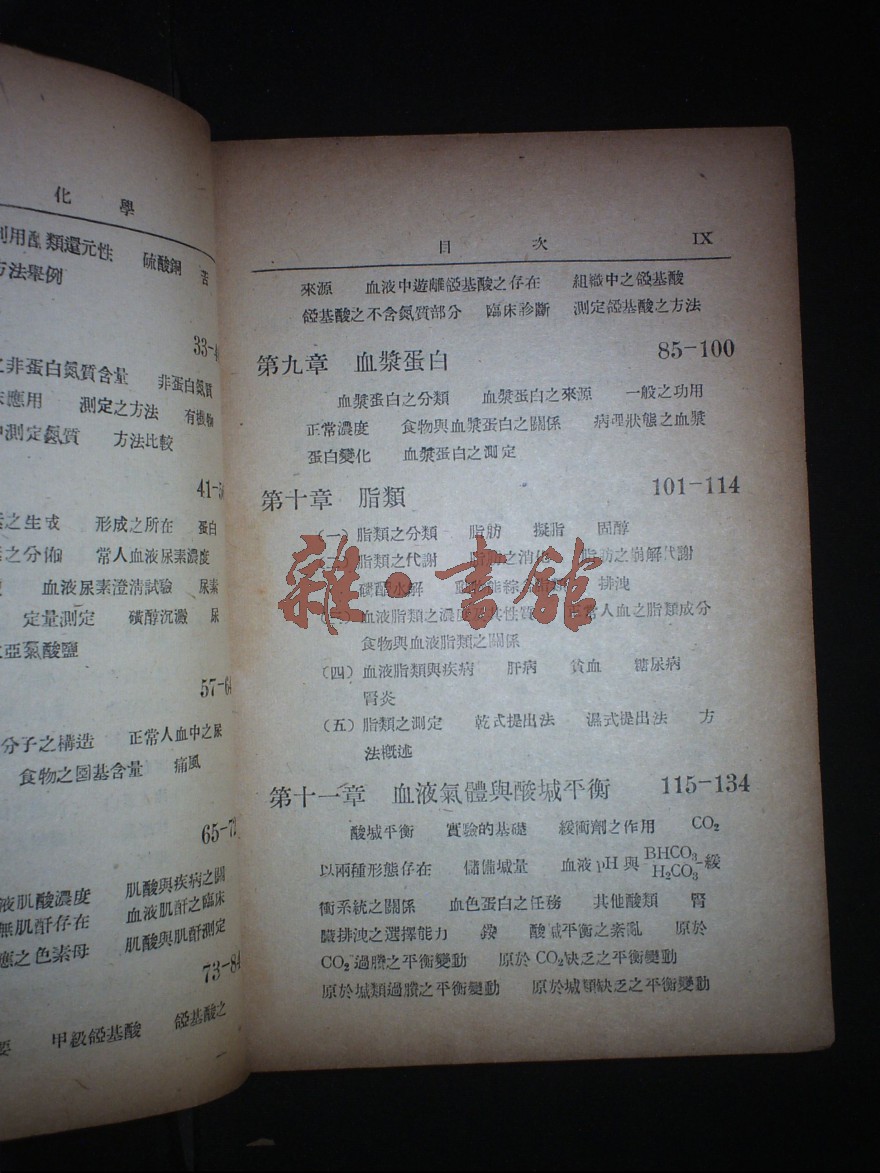 化學
利用醣類還元性 硫酸銅 苦
方法舉例
33-4
之非蛋白氮質含量 非蛋白氮質
床應用 測定之方法 有機物
中測定氮質 方法比較
41-5
素之生成 形成之所在 蛋白
素之分佈 常人血液尿素濃度
血液尿素澄清試驗 尿素
定量測定 磺醇沉澱 尿
亞氯酸鹽
57-64
分子之構造 正常人血中之尿
食物之圜基含量 痛風
65-72
液肌酸濃度 肌酸與疾病之關
無肌酐存在 血液肌酐之臨床
應之色素母 肌酸與肌酐測定
73-84
要 甲級䤝基酸 䤝基酸之
目次 IX
來源 血液中遊離䤝基酸之存在 組織中之䤝基酸
䤝基酸之不含氮質部分 臨床診斷 測定䤝基酸之方法
第九章 血漿蛋白 85-100
血漿蛋白之分類 血漿蛋白之來源 一般之功用
正常濃度 食物與血漿蛋白之關係 病理狀態之血漿
蛋白變化 血漿蛋白之測定
第十章 脂類 101-114
(一)脂類之分類 脂肪 擬脂 固醇
(二)脂類之代謝 脂肪之消化 脂肪之崩解代謝
磷酯水解 排洩
(三)血液脂類之濃度及其性質 正常人血之脂類成分
食物與血液脂類之關係
(四)血液脂類與疾病 肝病 貧血 糖尿病
腎炎
(五)脂類之測定 乾式提出法 濕式提出法 方
法概述
第十一章 血液氣體與酸堿平衡 115-134
酸堿平衡 實驗的基礎 緩衝劑之作用 CO₂
以兩種形態存在 儲備堿量 血液pH與BHCO₃/H₂CO₃-緩
衝系統之關係 血色蛋白之任務 其他酸類 腎
臟排洩之選擇能力 銨 酸堿平衡之紊亂 原於
CO₂過賸之平衡變動 原於CO₂缺乏之平衡變動
原於堿類過賸之平衡變動 原於堿類缺乏之平衡變動
雜·書館